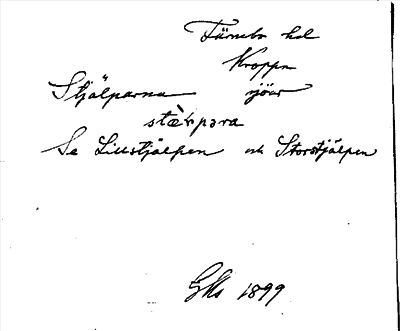 Färnebo hd
Kroppa
Stjälparna sjöar
stæ̀lpara
Se Lillstjälpen och Storstjälpen
GKs 1899